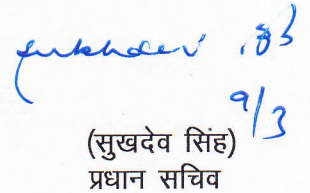 sukhdev
9/3
(सुखदेव सिंह)
प्रधान सचिव